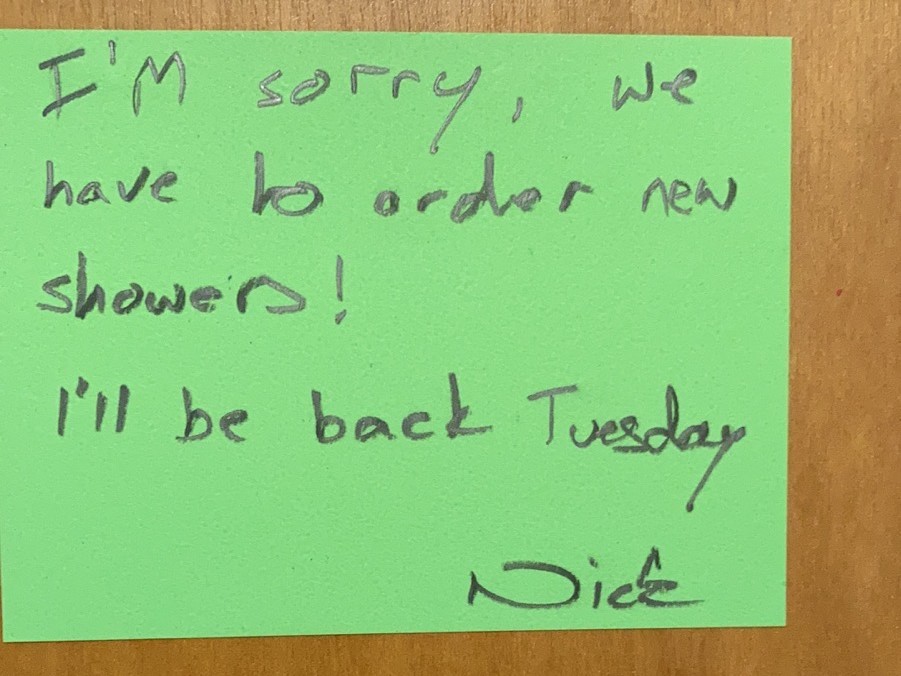 I'M sorry, we
have to order new
showers!
I'll be back Tuesday
Nick